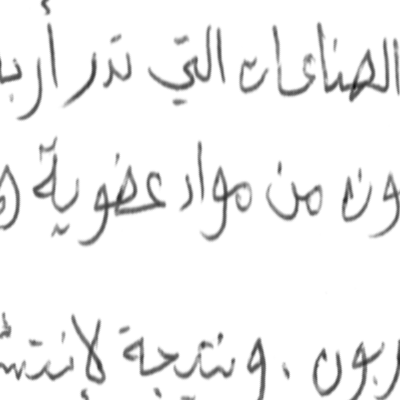 الصناعات التي تدر أرب
ون من مواد عضوية
ربون . ونتيجة لإنتش